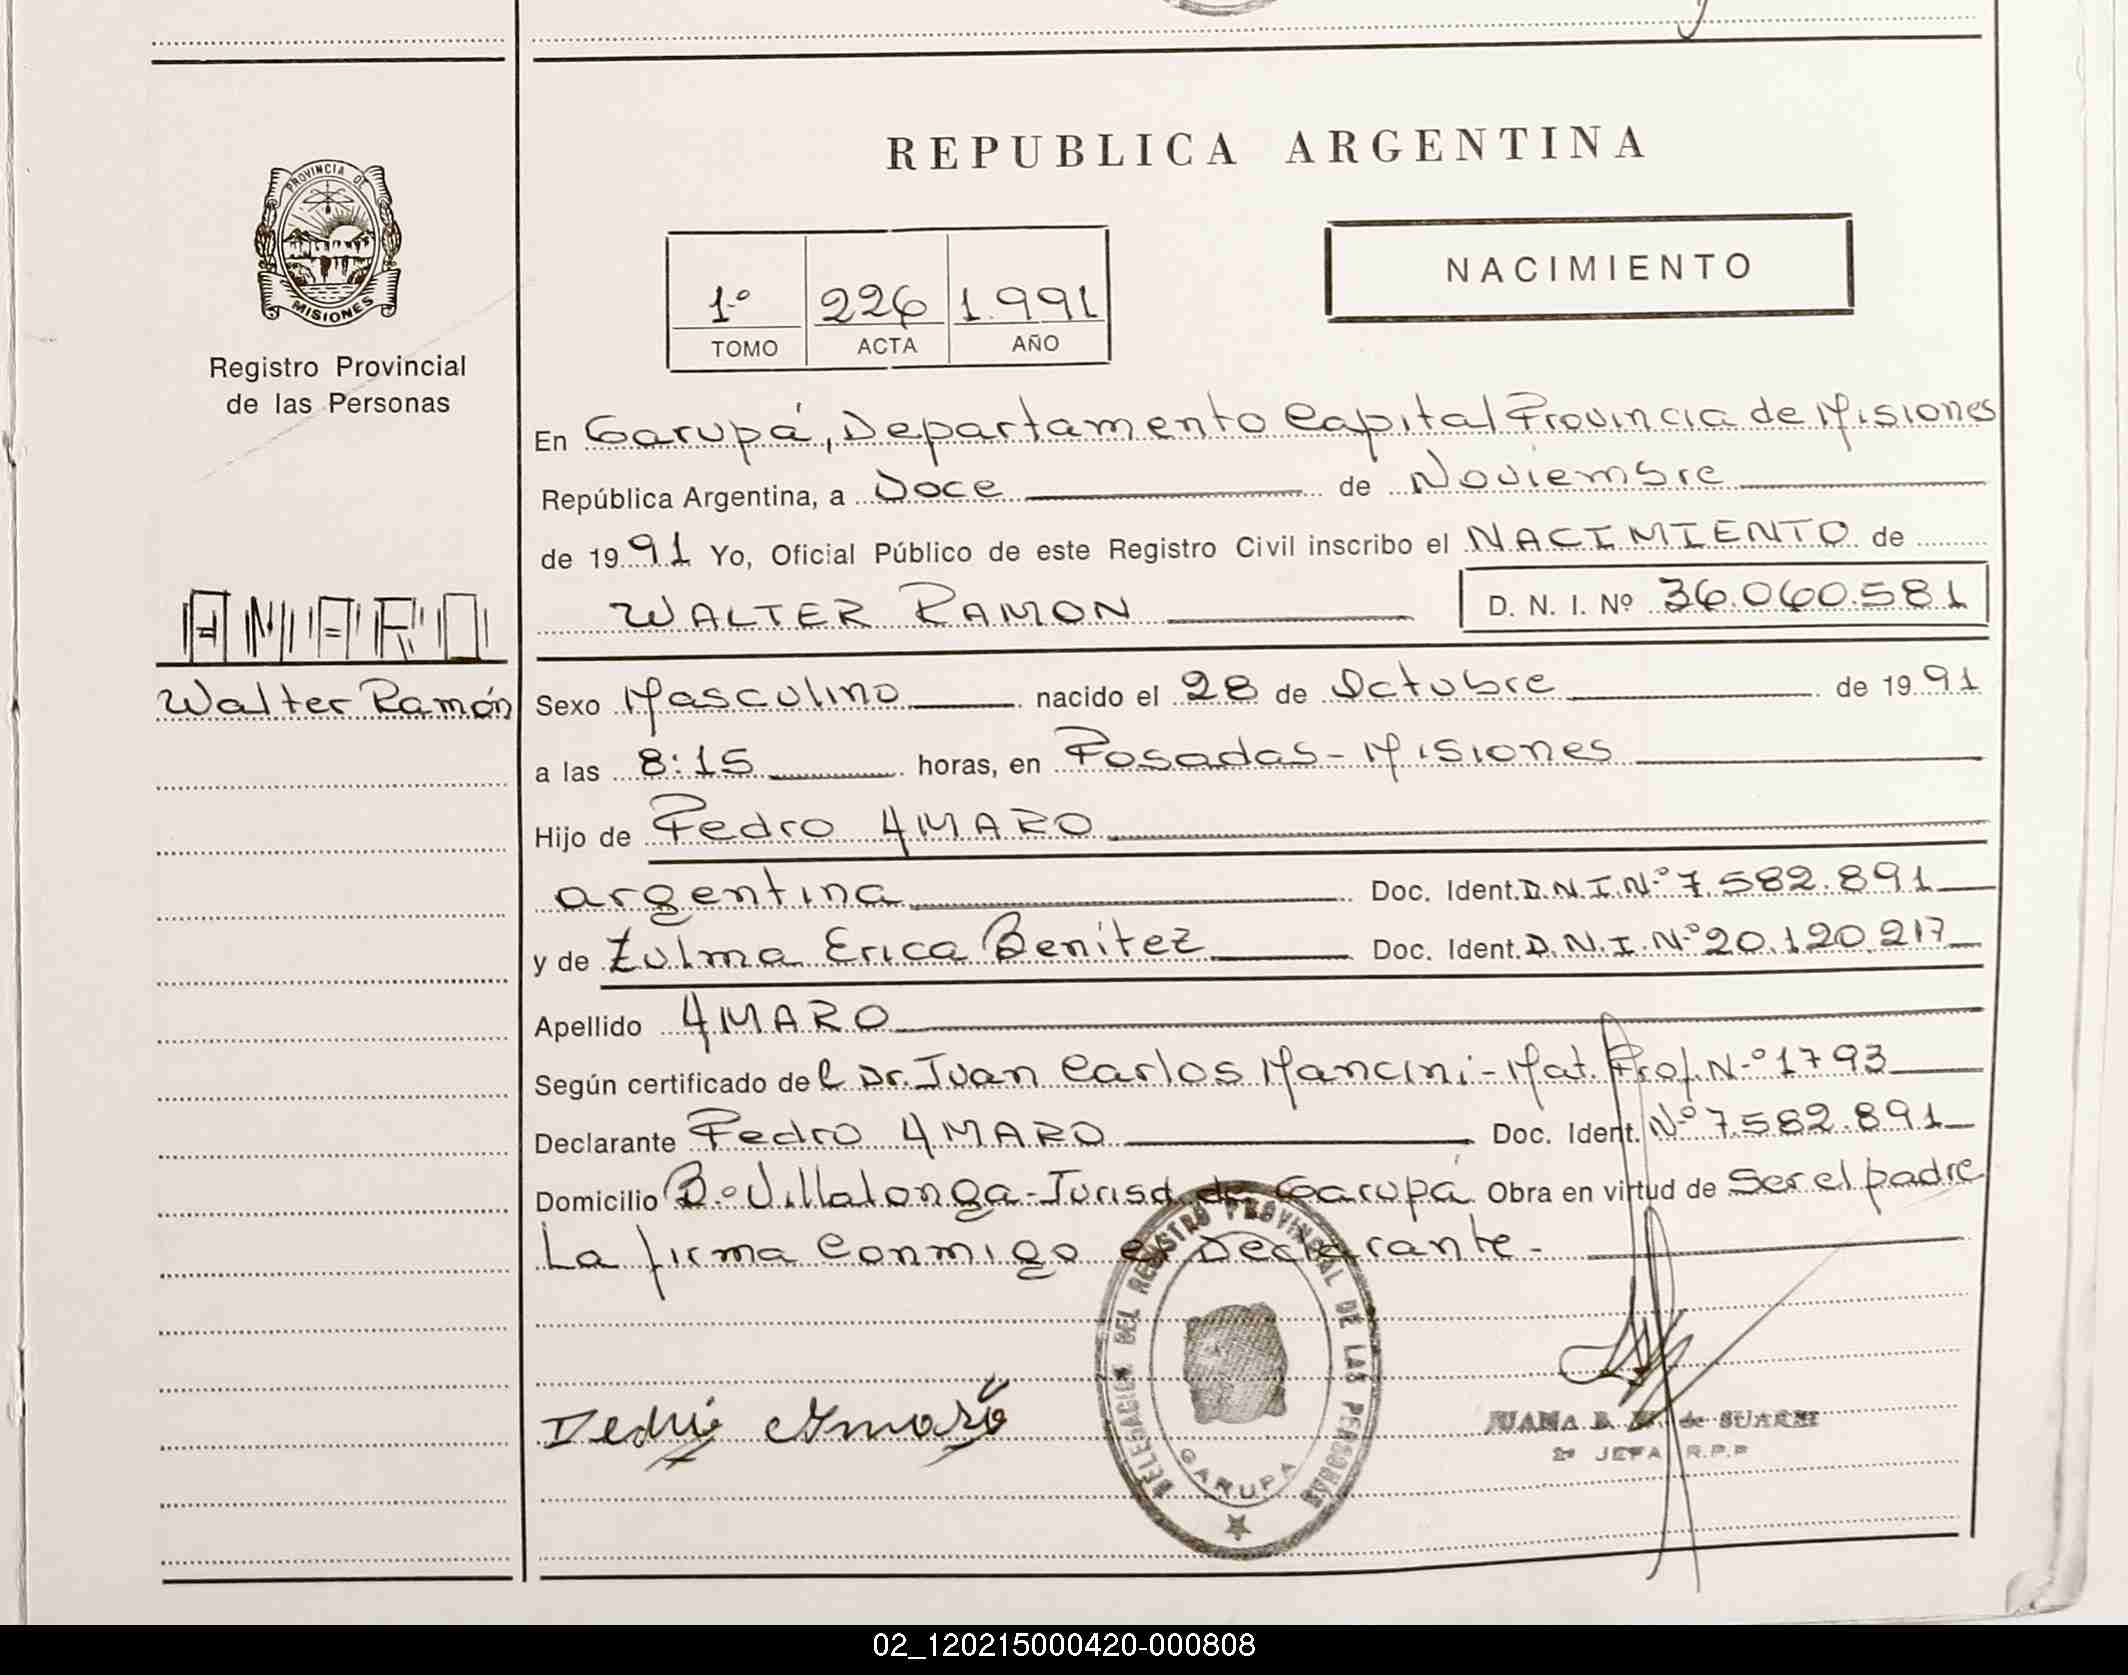 REPUBLICA ARGENTINA
PROVINCIA DE
MISIONES
Registro Provincial
de las Personas
1º 226 1.991
TOMO ACTA AÑO
NACIMIENTO
En Garupá, Departamento Capital Provincia de Misiones
República Argentina, a Doce de Noviembre
de 1991 Yo, Oficial Público de este Registro Civil inscribo el NACIMIENTO de
WALTER RAMON D. N. I. Nº 36.060.581
AMARO
Walter Ramón
Sexo Masculino nacido el 28 de Octubre de 1991
a las 8:15 horas, en Posadas - Misiones
Hijo de Pedro AMARO
argentina Doc. Ident. D.N.I.Nº 7.582.891
y de Zulma Erica Benitez Doc. Ident. D.N.I.Nº 20.120.217
Apellido AMARO
Según certificado del Dr. Juan Carlos Mancini - Mat. Prof. Nº 1793
Declarante Pedro AMARO Doc. Ident. Nº 7.582.891
Domicilio Bº Villalonga - Jurisd. de Garupá Obra en virtud de Ser el padre
La firma Conmigo el Declarante -
DELEGACION DEL REGISTRO PROVINCIAL DE LAS PERSONAS
GARUPA
Pedro Amaro
JUANA B. de SUAREZ
2ª JEFA R.P.P
02_120215000420-000808